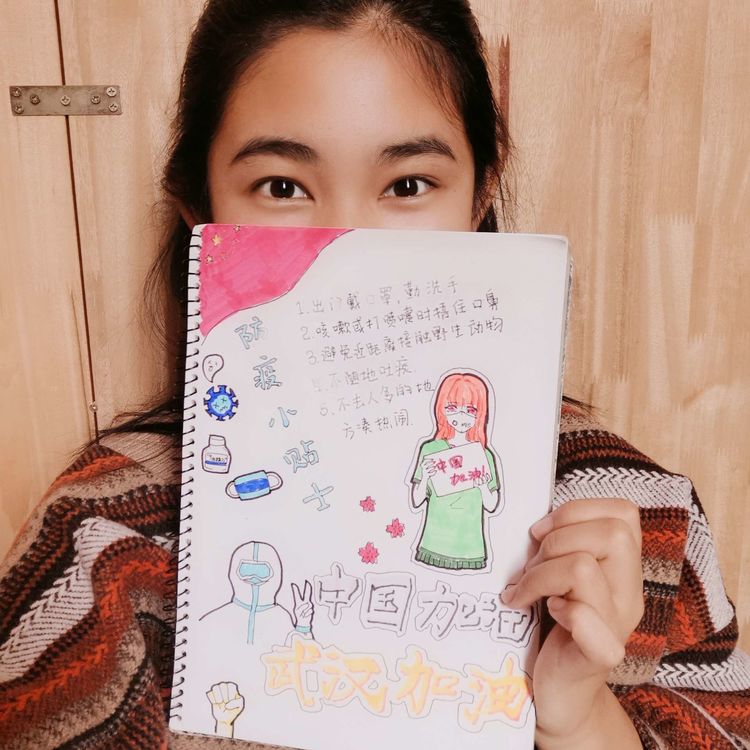 1.出门戴口罩,勤洗手
2.咳嗽或打喷嚏时捂住口鼻
3.避免近距离接触野生动物
4.不随地吐痰
5.不去人多的地
方凑热闹.
防疫小贴士
中国
加油!
中国加油
武汉加油